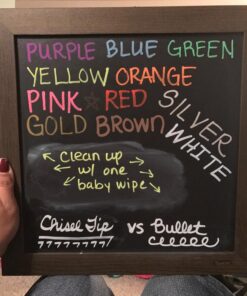 PURPLE BLUE GREEN
YELLOW ORANGE
PINK RED SILVER
GOLD BROWN WHITE
clean up
w/ one
baby wipe
Chisel Tip vs Bullet